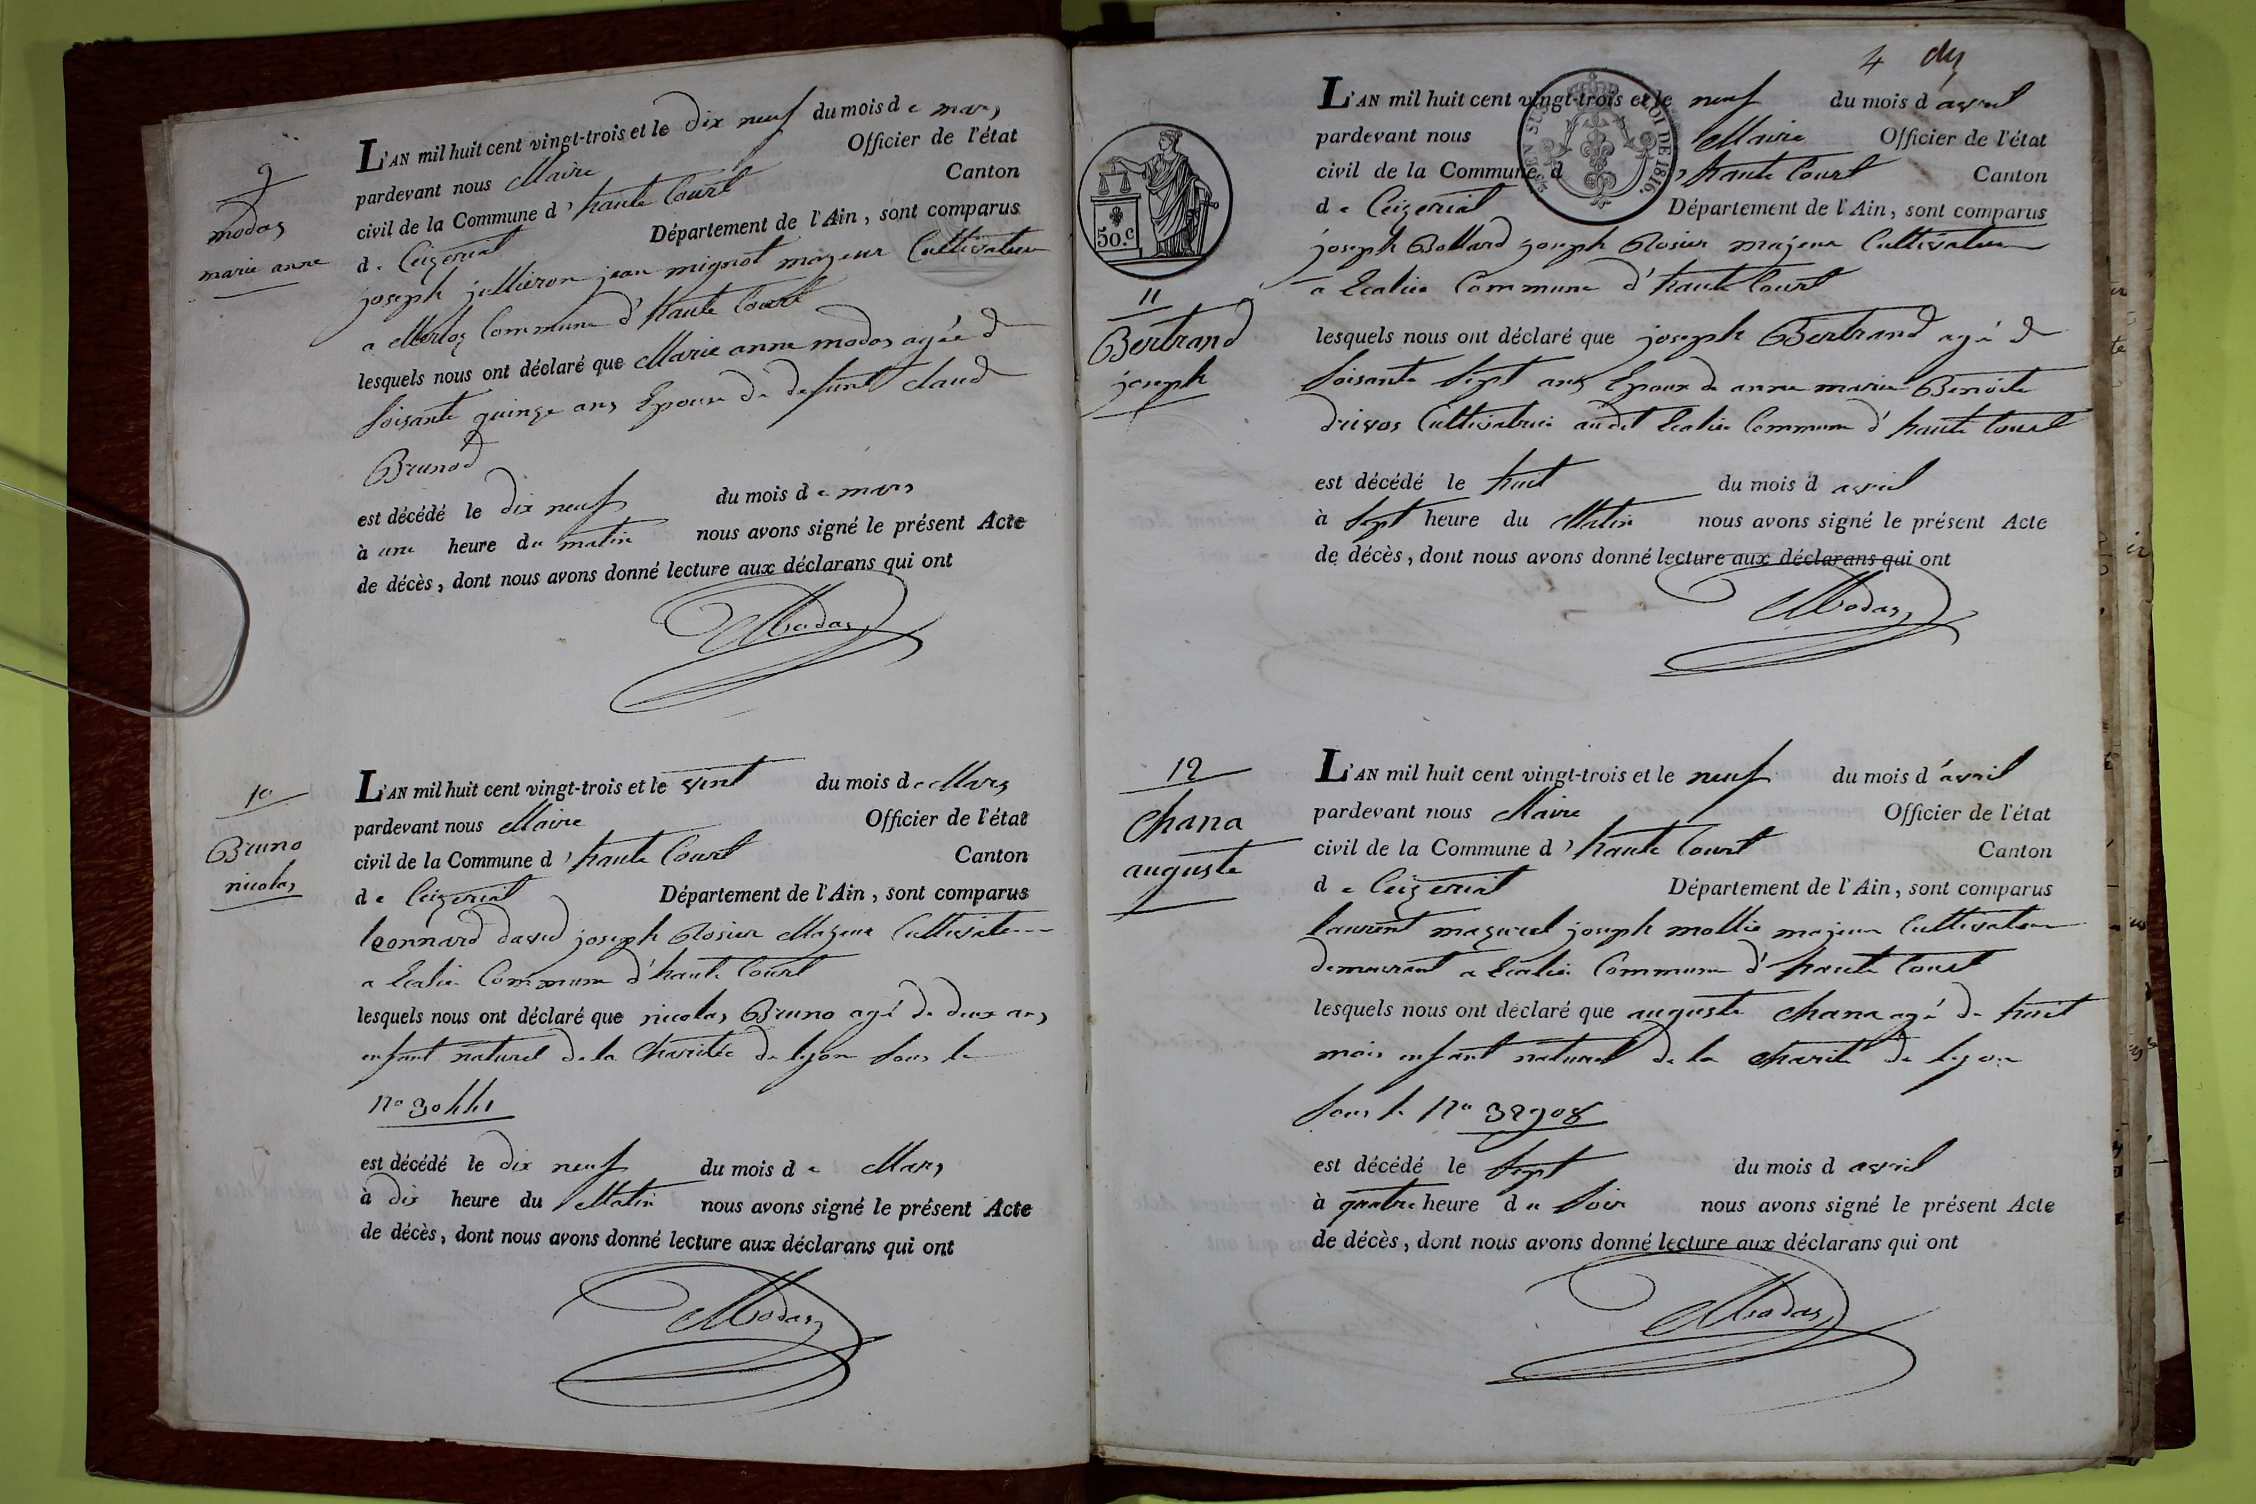 9
modas
marie anne
L'AN mil huit cent vingt-trois et le dix neuf du mois de mars
pardevant nous Maire Officier de l'état
civil de la Commune d'haute Court Canton
de Ceizeriat Département de l'Ain, sont comparus
joseph jullieron jean mignot majeur Cultivateur
a Merloz Commune d'haute Court
lesquels nous ont déclaré que Marie anne modas agée de
soisante quinze ans Epouse de defunt claude
Brunod
est décédé le dix neuf du mois de mars
à une heure du matin nous avons signé le présent Acte
de décès, dont nous avons donné lecture aux déclarans qui ont
Modas
10
Bruno
nicolas
L'AN mil huit cent vingt-trois et le vint du mois de Mars
pardevant nous Maire Officier de l'état
civil de la Commune d'haute Court Canton
de Ceizeriat Département de l'Ain, sont comparus
Leonnard david joseph Rosier Majeur Cultivate
a Commune d'haute Court
lesquels nous ont déclaré que nicolas Bruno agé de deux ans
enfant naturel de la Charitée de lyon sous le
no 30441
est décédé le dix neuf du mois de Mars
à dix heure du Matin nous avons signé le présent Acte
de décès, dont nous avons donné lecture aux déclarans qui ont
Modas
4
50.c
LOI DE 1816.
11
Bertrand
joseph
L'AN mil huit cent vingt-trois et le neuf du mois d avril
pardevant nous Maire Officier de l'état
civil de la Commune d'haute Court Canton
de Ceizeriat Département de l'Ain, sont comparus
joseph Bollard joseph Rosier majeur Cultivateur
a Commune d'haute Court
lesquels nous ont déclaré que joseph Bertrand agé de
soisante sept ans Epoux de anne marie Benoite
Cultivatrice audit Commune d'haute Court
est décédé le huit du mois d avril
à sept heure du Matin nous avons signé le présent Acte
de décès, dont nous avons donné lecture aux déclarans qui ont
Modas
12
Chana
auguste
L'AN mil huit cent vingt-trois et le neuf du mois d'avril
pardevant nous Maire Officier de l'état
civil de la Commune d'haute Court Canton
de Ceizeriat Département de l'Ain, sont comparus
laurent mazuret joseph mollie majeur Cultivateur
demeurant a Commune d'haute Court
lesquels nous ont déclaré que auguste Chana agé de huit
mois enfant naturel de la Charité de lyon
sous le no 32908
est décédé le sept du mois d avril
à quatre heure du soir nous avons signé le présent Acte
de décès, dont nous avons donné lecture aux déclarans qui ont
Modas